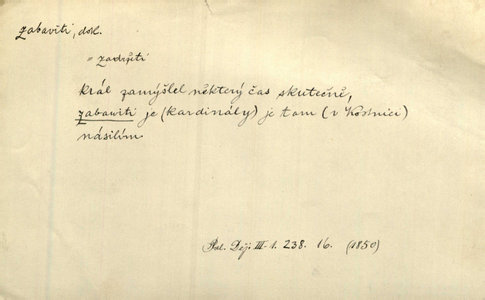 zabaviti, dok.
= zadržeti
král zamýšlel některý čas skutečně,
zabawiti je (kardinály) je tam (v Kostnici)
násilím
Pal. Děj. III-1. 238. 16. (1850)